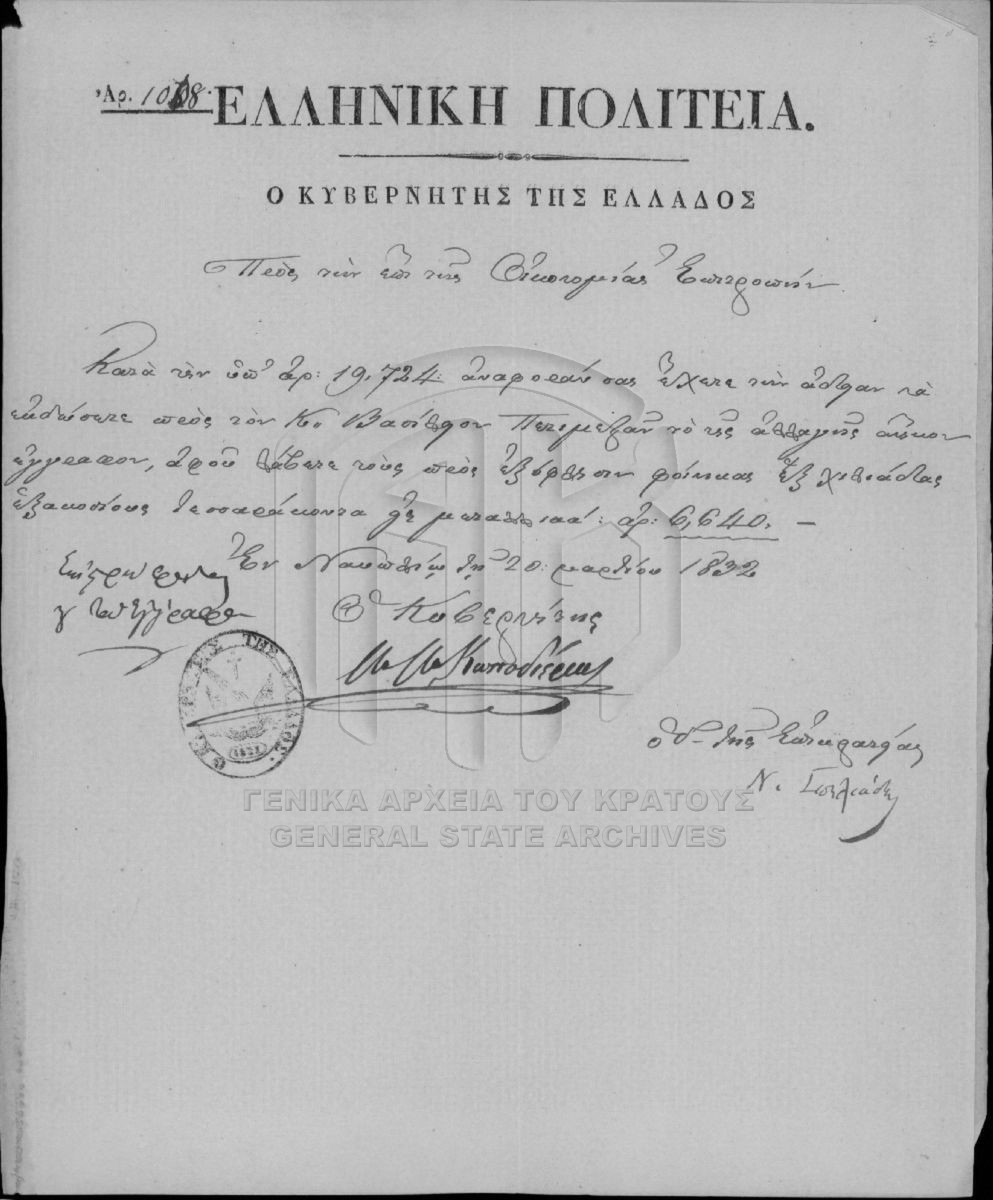 Ἀρ. 1018.
ΕΛΛΗΝΙΚΗ ΠΟΛΙΤΕΙΑ.
Ο ΚΥΒΕΡΝΗΤΗΣ ΤΗΣ ΕΛΛΑΔΟΣ
Πρὸς τὴν ἐπὶ τῆς Οἰκονομίας Ἐπιτροπήν.
Κατὰ τὴν ὑπ' ἀρ: 19,724: ἀναφοράν σας ἔχετε τὴν ἄδειαν νὰ
ἐκδώσετε πρὸς τὸν Κον Βασίλειον Πετιμεζᾶν τὸ τῆς ἀλλαγῆς
ἔγγραφον, ἀφοῦ λάβετε τοὺς πρὸς ἐξόφλησιν φοίνικας ἓξ χιλιάδας
ἑξακοσίους τεσσαράκοντα ἀρ: 6,640. —
Ἐν Ναυπλίῳ τῇ 20: μαρτίου 1832
Ὁ Κυβερνήτης
Καποδίστριας
Ο ΚΥΒΕΡΝΗΤΗΣ ΤΗΣ ΕΛΛΑΔΟΣ.
1821
ὁ Γ- τῆς Ἐπικρατείας
Ν. Σπηλιάδης
ΓΕΝΙΚΑ ΑΡΧΕΙΑ ΤΟΥ ΚΡΑΤΟΥΣ
GENERAL STATE ARCHIVES